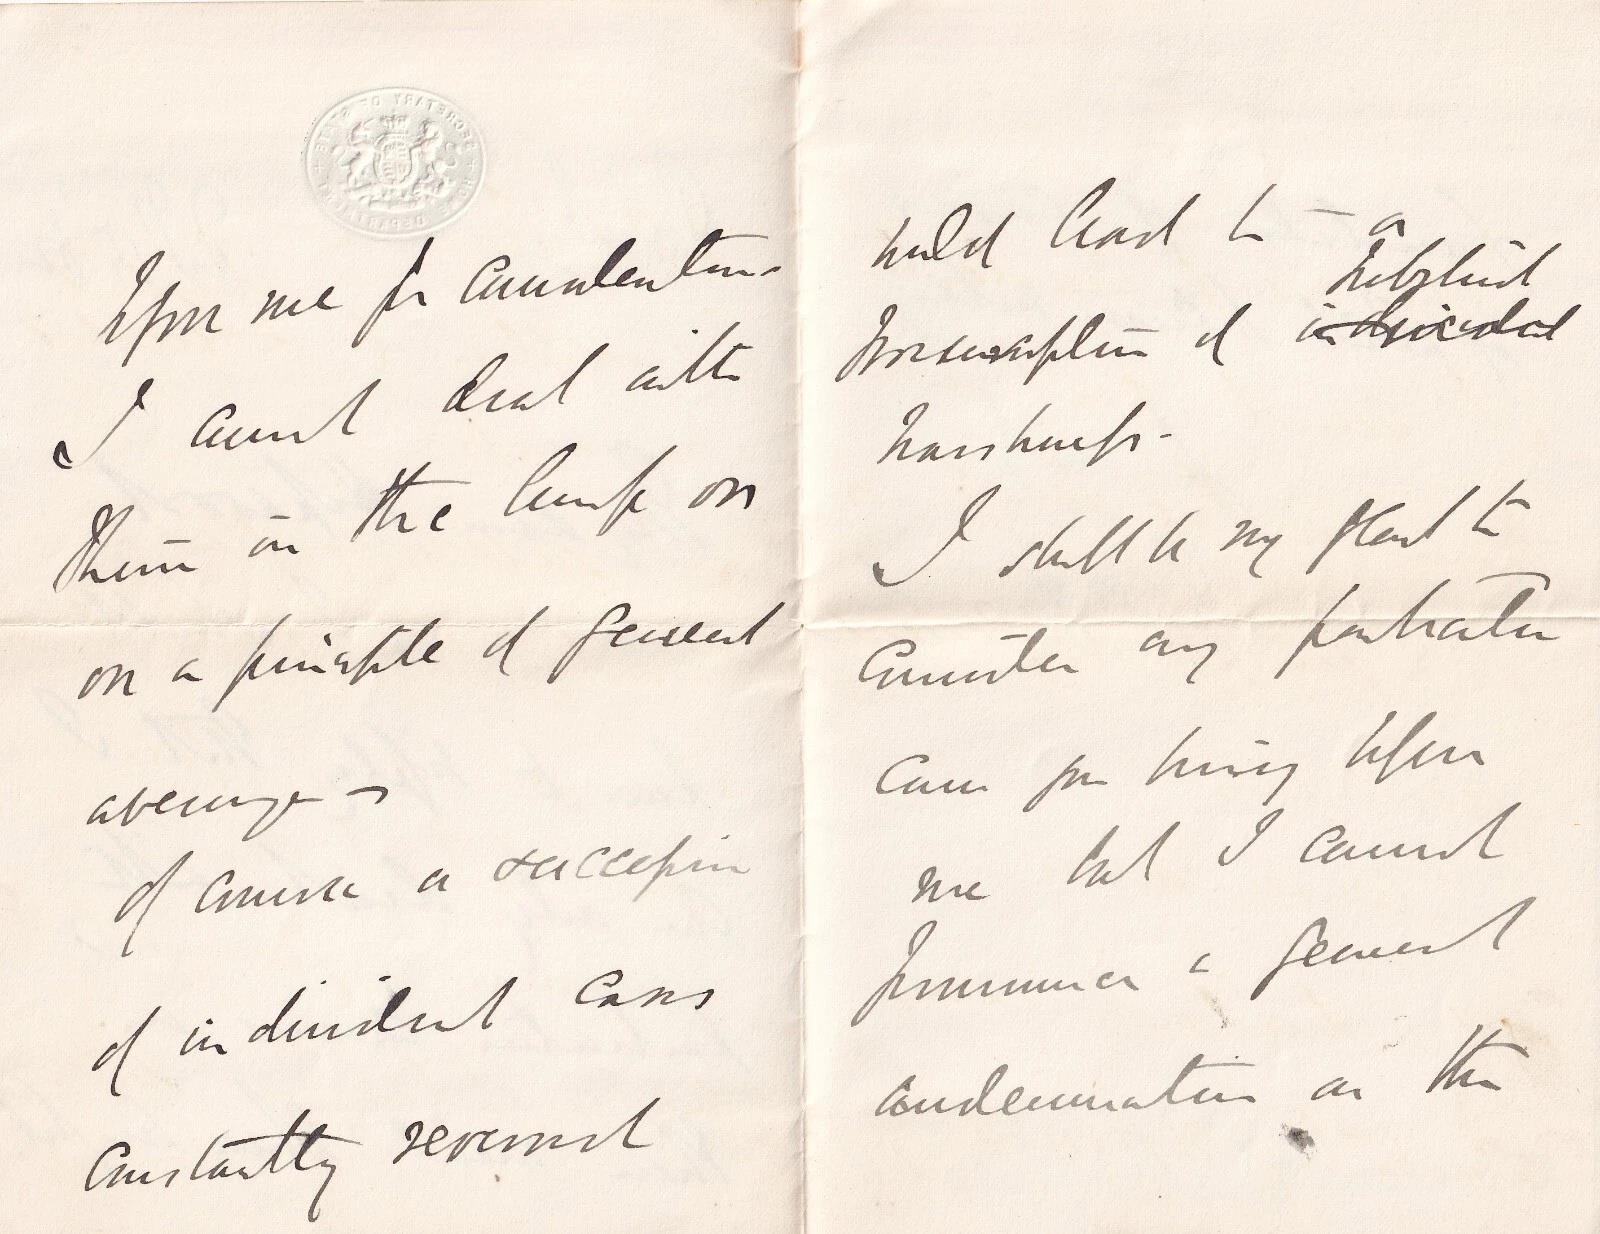 SECRETARY OF STATE HOME DEPARTMENT
before me for consideration
I cannot deal with
them in the lump on
on a principle of general
average –
Of course a succession
of individual cases
constantly reversed
would lead to – a
presumption of individual
harshness.
I shall be my glad to
consider any particular
case you bring before
me but I cannot
pronounce a general
condemnation on the